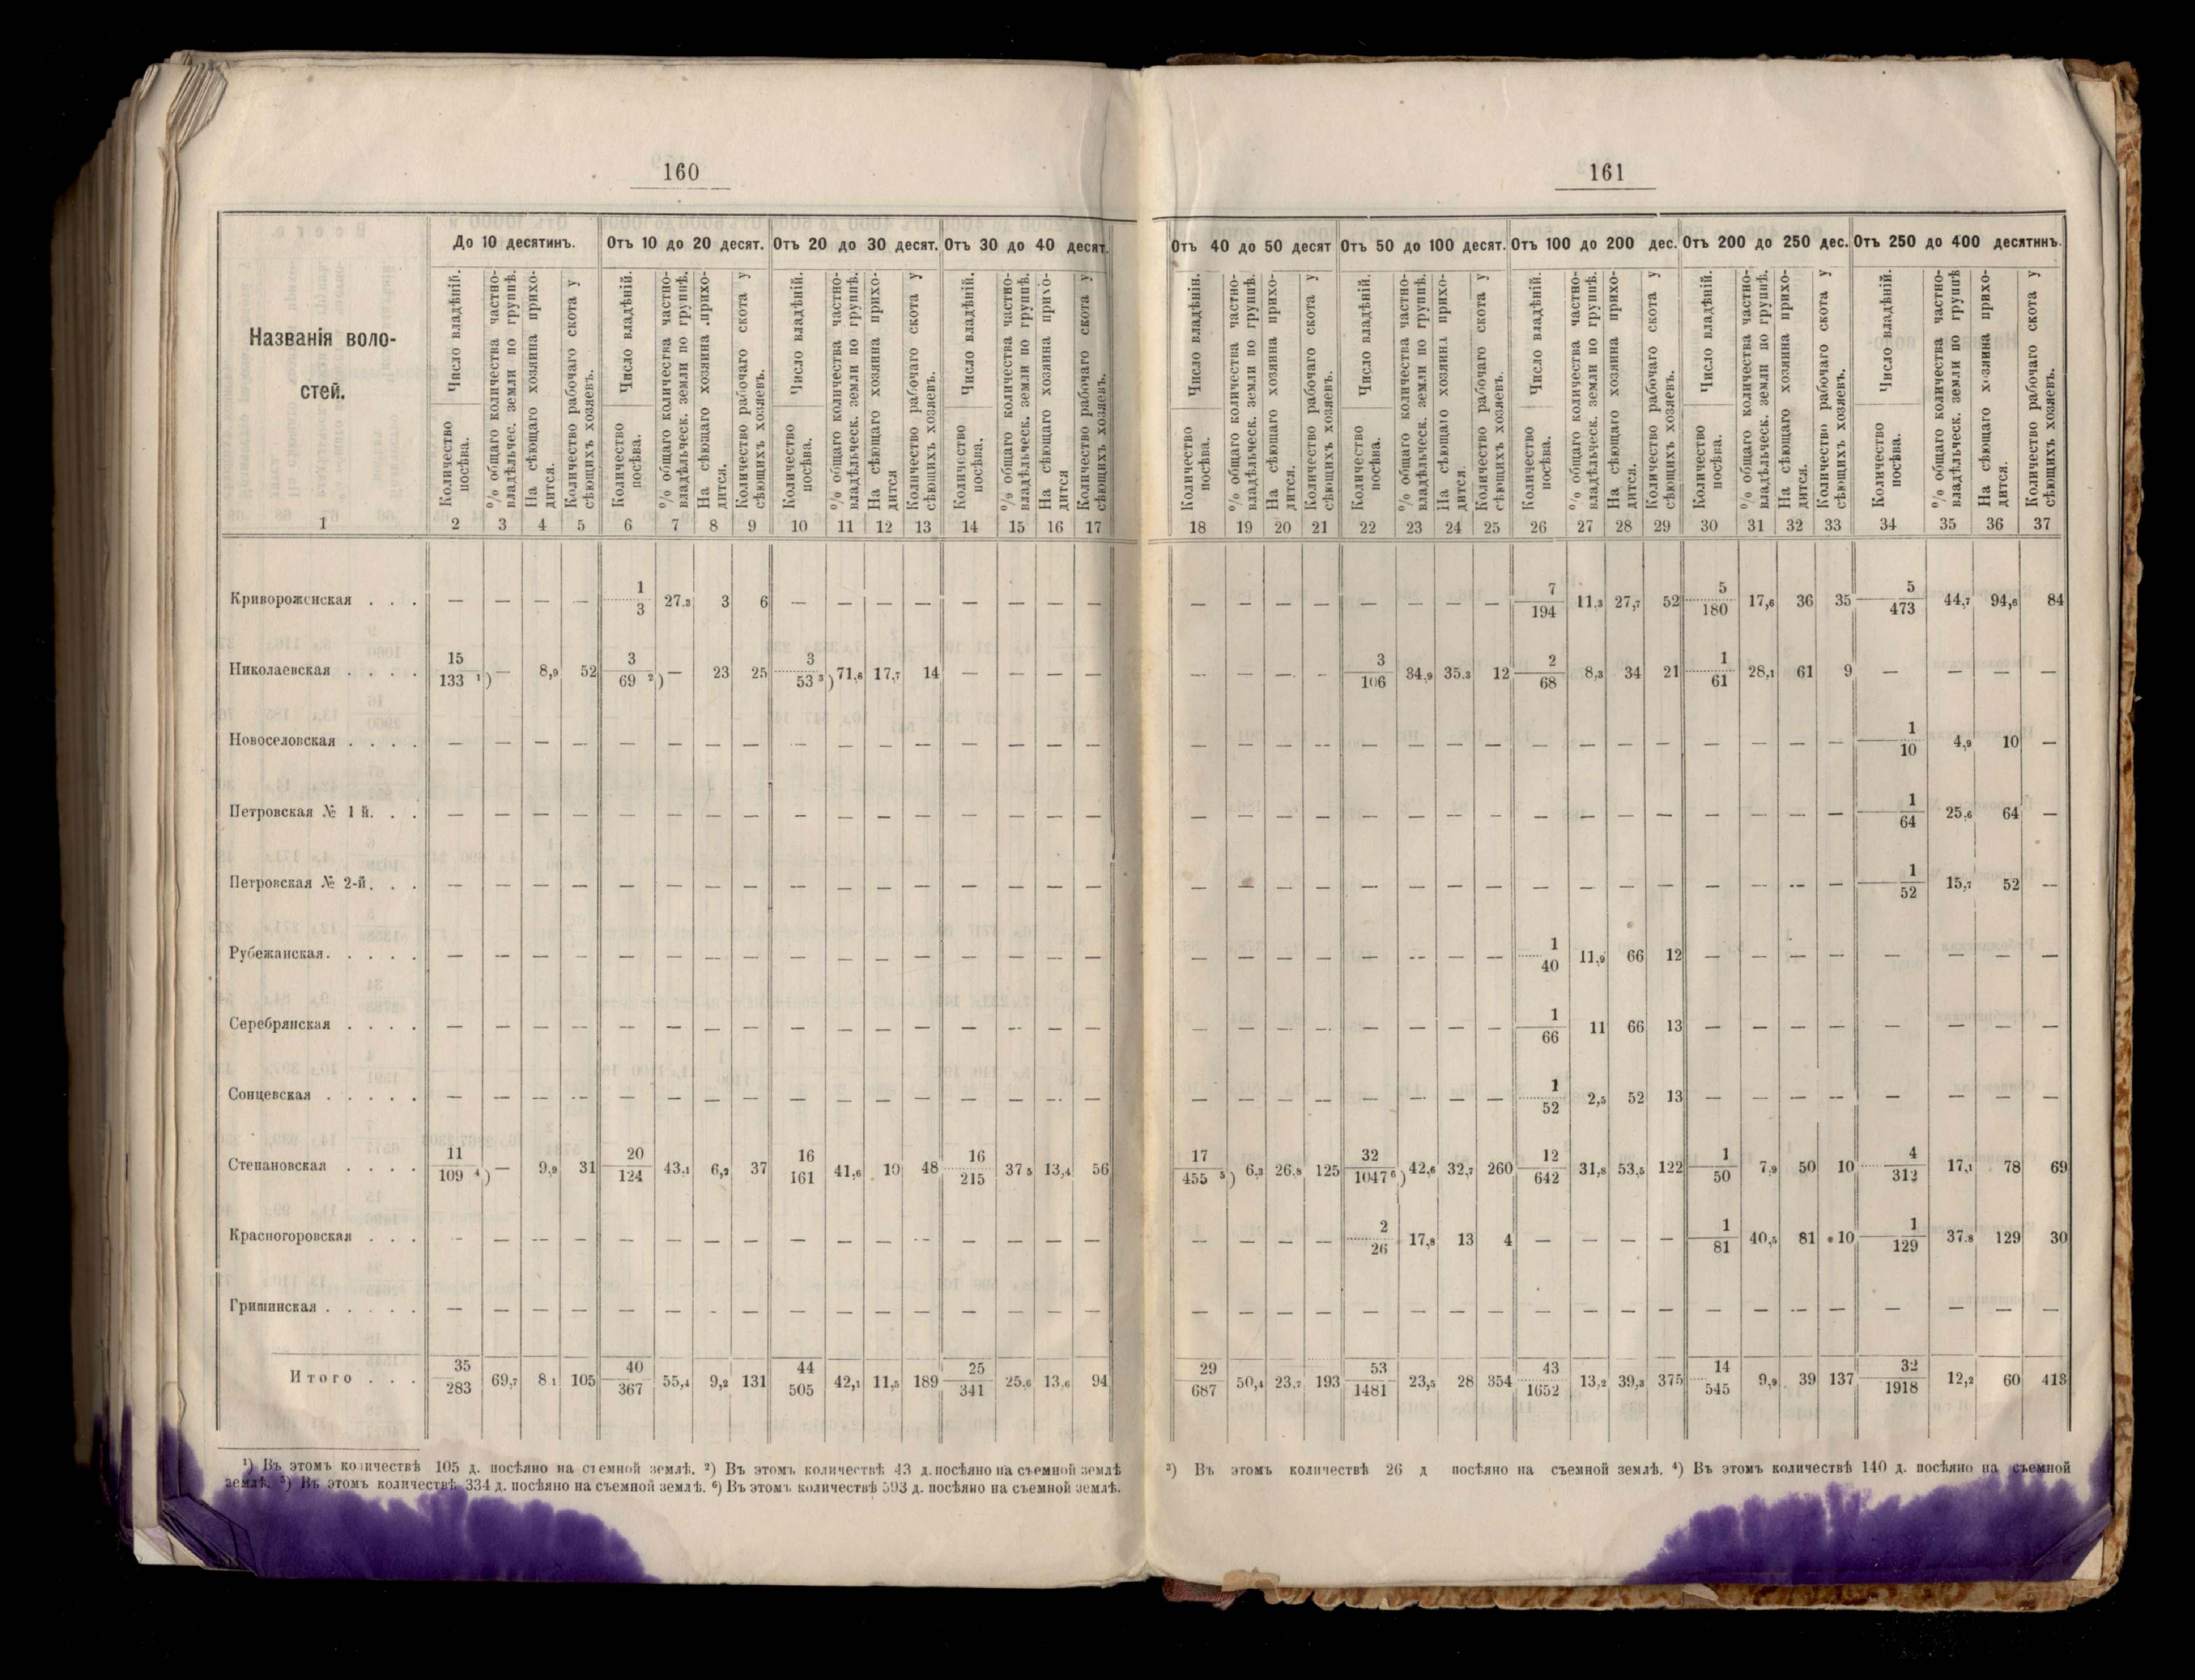 160
До 10 десятинъ. Отъ 10 до 20 десят. Отъ 20 до 30 десят. Отъ 30 до 40 десят.
Названія воло-
стей.
Число владѣній. Количество посѣва. % общаго количества частно-владѣльчес. земли по группѣ. На сѣющаго хозяина прихо-дится. Количество рабочаго скота у сѣющихъ хозяевъ.
Число владѣній. Количество посѣва. % общаго количества частно-владѣльческ. земли по группѣ. На сѣющаго хозяина прихо-дится. Количество рабочаго скота у сѣющихъ хозяевъ.
Число владѣній. Количество посѣва. % общаго количества частно-владѣльческ. земли по группѣ. На сѣющаго хозяина прихо-дится Количество рабочаго скота у сѣющихъ хозяевъ.
Число владѣній. Количество посѣва. % общаго количества частно-владѣльческ. земли по группѣ. На сѣющаго хозяина прихо-дится Количество рабочаго скота у сѣющихъ хозяевъ.
1 2 3 4 5 6 7 8 9 10 11 12 13 14 15 16 17
Кривороженская . . . — — — — 1/3 27,3 3 6 — — — — — — — —
Николаевская . . . . 15/133 ¹) — 8,9 52 3/69 ²) — 23 25 3/53 ³) 71,6 17,7 14 — — — —
Новоселовская . . . . — — — — — — — — — — — — — — — —
Петровская № 1 й. . . — — — — — — — — — — — — — — — —
Петровская № 2-й. . . — — — — — — — — — — — — — — — —
Рубежанская. . . . . — — — — — — — — — — — — — — — —
Серебрянская . . . . — — — — — — — — — — — — — — — —
Сонцевская . . . . . — — — — — — — — — — — — — — — —
Степановская . . . . 11/109 ⁴) — 9,9 31 20/124 43,1 6,2 37 16/161 41,6 10 48 16/215 37 5 13,4 56
Красногоровская . . . — — — — — — — — — — — — — — — —
Гришинская . . . . . — — — — — — — — — — — — — — — —
Итого . . . 35/283 69,7 8 1 105 40/367 55,4 9,2 131 44/505 42,1 11,5 189 25/341 25,6 13,6 94
¹) Въ этомъ количествѣ 105 д. посѣяно на съемной землѣ. ²) Въ этомъ количествѣ 43 д. посѣяно на съемной землѣ
землѣ. ⁵) Въ этомъ количествѣ 334 д. посѣяно на съемной землѣ. ⁶) Въ этомъ количествѣ 593 д. посѣяно на съемной землѣ.
161
Отъ 40 до 50 десят Отъ 50 до 100 десят. Отъ 100 до 200 дес. Отъ 200 до 250 дес. Отъ 250 до 400 десятинъ.
Число владѣній. Количество посѣва. % общаго количества частно-владѣльческ. земли по группѣ. На сѣющаго хозяина прихо-дится. Количество рабочаго скота у сѣющихъ хозяевъ.
Число владѣній. Количество посѣва. % общаго количества частно-владѣльческ. земли по группѣ. На сѣющаго хозяина прихо-дится. Количество рабочаго скота у сѣющихъ хозяевъ.
Число владѣній. Количество посѣва. % общаго количества частно-владѣльческ. земли по группѣ. На сѣющаго хозяина прихо-дится. Количество рабочаго скота у сѣющихъ хозяевъ.
Число владѣній. Количество посѣва. % общаго количества частно-владѣльческ. земли по группѣ. На сѣющаго хозяина прихо-дится. Количество рабочаго скота у сѣющихъ хозяевъ.
Число владѣній. Количество посѣва. % общаго количества частно-владѣльческ. земли по группѣ На сѣющаго хозяина прихо-дится. Количество рабочаго скота у сѣющихъ хозяевъ.
18 19 20 21 22 23 24 25 26 27 28 29 30 31 32 33 34 35 36 37
— — — — — — — — 7/194 11,3 27,7 52 5/180 17,6 36 35 5/473 44,7 94,6 84
— — — — 3/106 34,9 35,3 12 2/68 8,3 34 21 1/61 28,1 61 9 — — — —
— — — — — — — — — — — — — — — — 1/10 4,9 10 —
— — — — — — — — — — — — — — — — 1/64 25,6 64 —
— — — — — — — — — — — — — — — — 1/52 15,7 52 —
— — — — — — — — 1/40 11,9 66 12 — — — — — — — —
— — — — — — — — 1/66 11 66 13 — — — — — — — —
— — — — — — — — 1/52 2,5 52 13 — — — — — — — —
17/455 ⁵) 6,3 26,8 125 32/1047 ⁶) 42,6 32,7 260 12/642 31,8 53,5 122 1/50 7,9 50 10 4/312 17,1 78 69
— — — — 2/26 17,8 13 4 — — — — 1/81 40,5 81 10 1/129 37,8 129 30
— — — — — — — — — — — — — — — — — — — —
29/687 50,4 23,7 193 53/1481 23,5 28 354 43/1652 13,2 39,3 375 14/545 9,9 39 137 32/1918 12,2 60 413
³) Въ этомъ количествѣ 26 д посѣяно на съемной землѣ. ⁴) Въ этомъ количествѣ 140 д. посѣяно на съемной